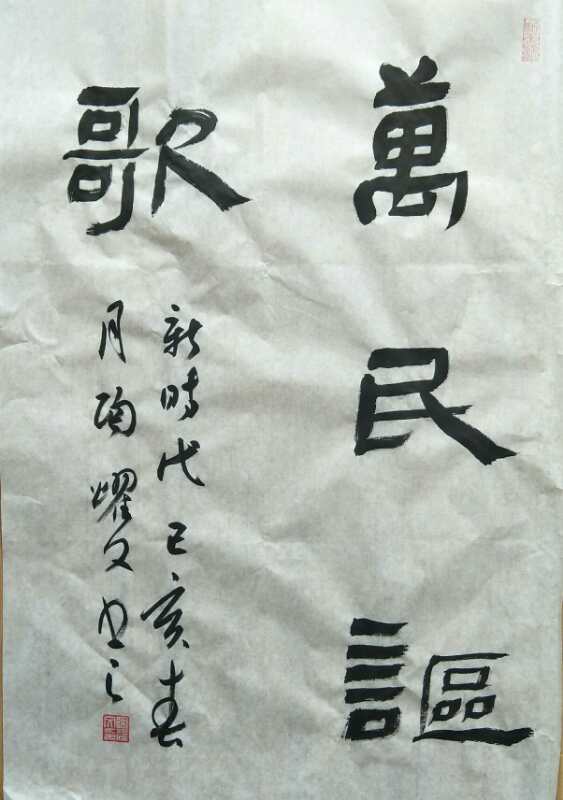 萬民謳
歌
新時代己亥春
月陶耀文書之